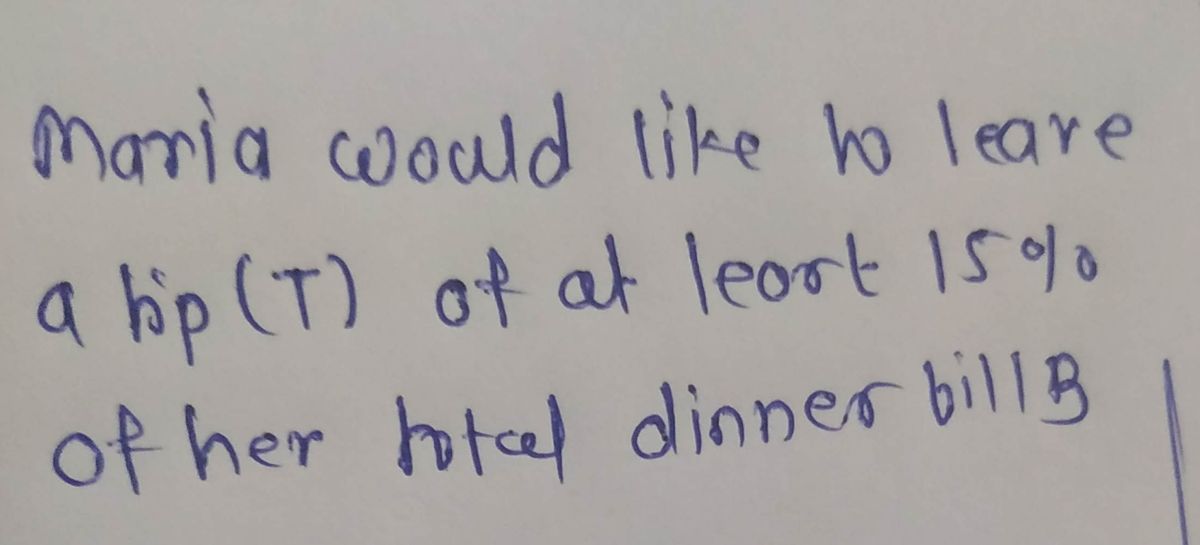 Maria would like to leave
a tip (T) of at least 15%
of her total dinner bill B